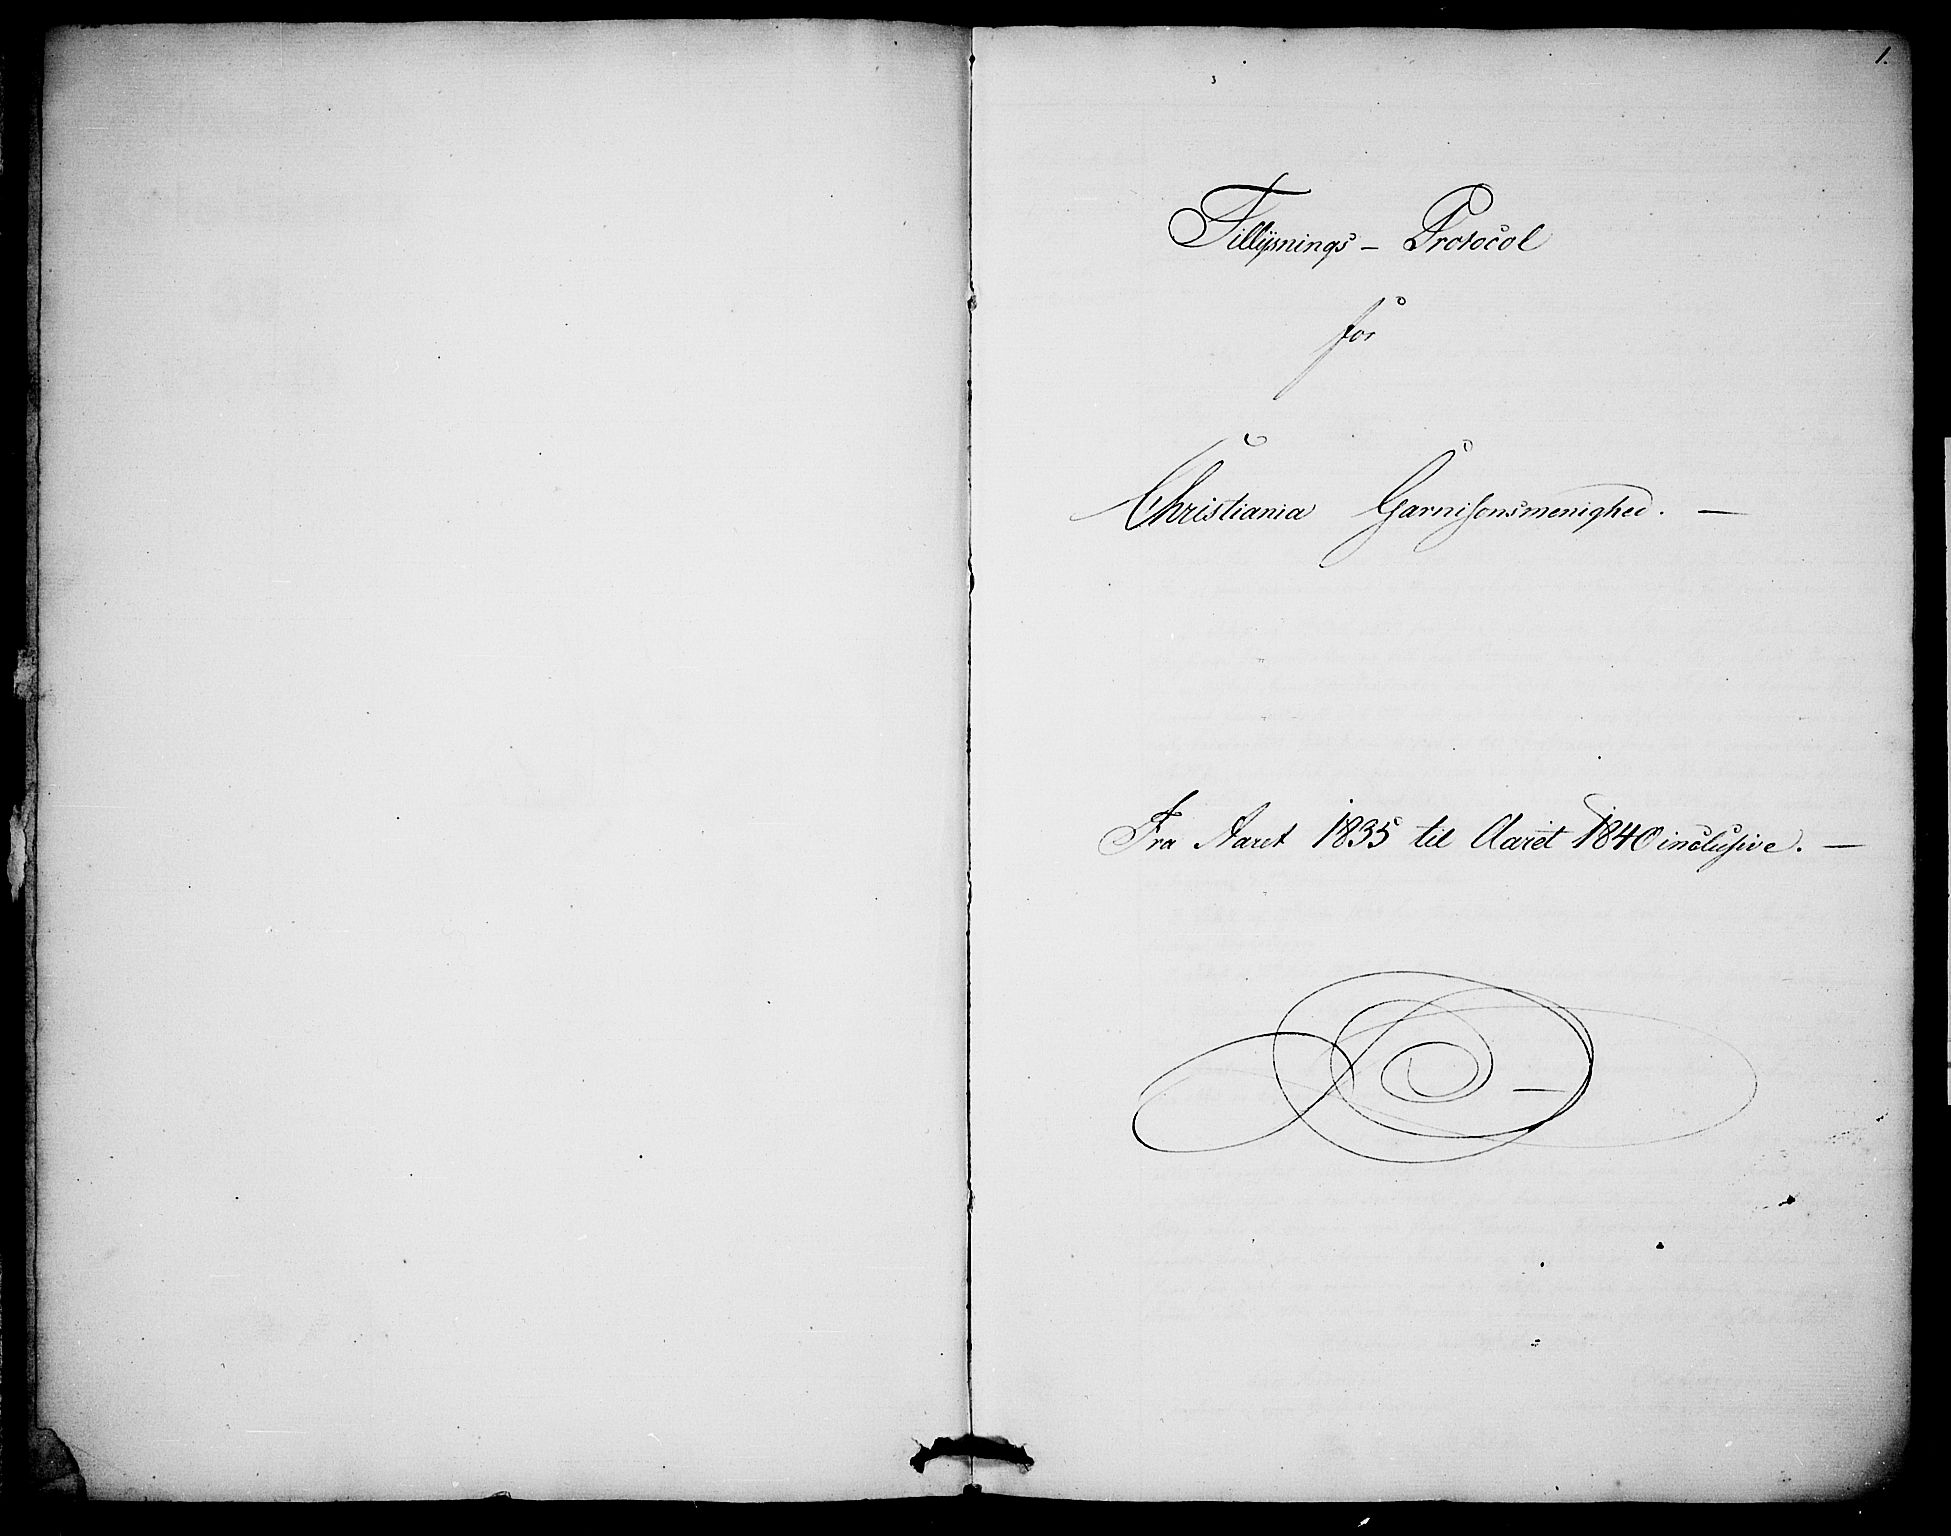 1.
Tillysnings - Protocol
for
Christiania Garnisonsmenighed. —
Fra Aaret 1835 til Aaret 1840 inclusive. —